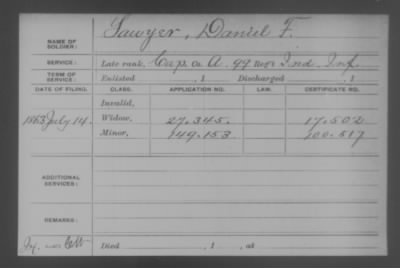 NAME OF SOLDIER: Sawyer, Daniel F.
SERVICE: Late rank, Cap. Co. A, 99 Reg't Ind. Inf.
TERM OF SERVICE: Enlisted , 1 Discharged , 1
DATE OF FILING. CLASS. APPLICATION NO. LAW. CERTIFICATE NO.
Invalid,
1863 July 14. Widow, 27.345. 17.502
Minor, 149.153 100.517
ADDITIONAL SERVICES:
REMARKS:
Died , 1 , at